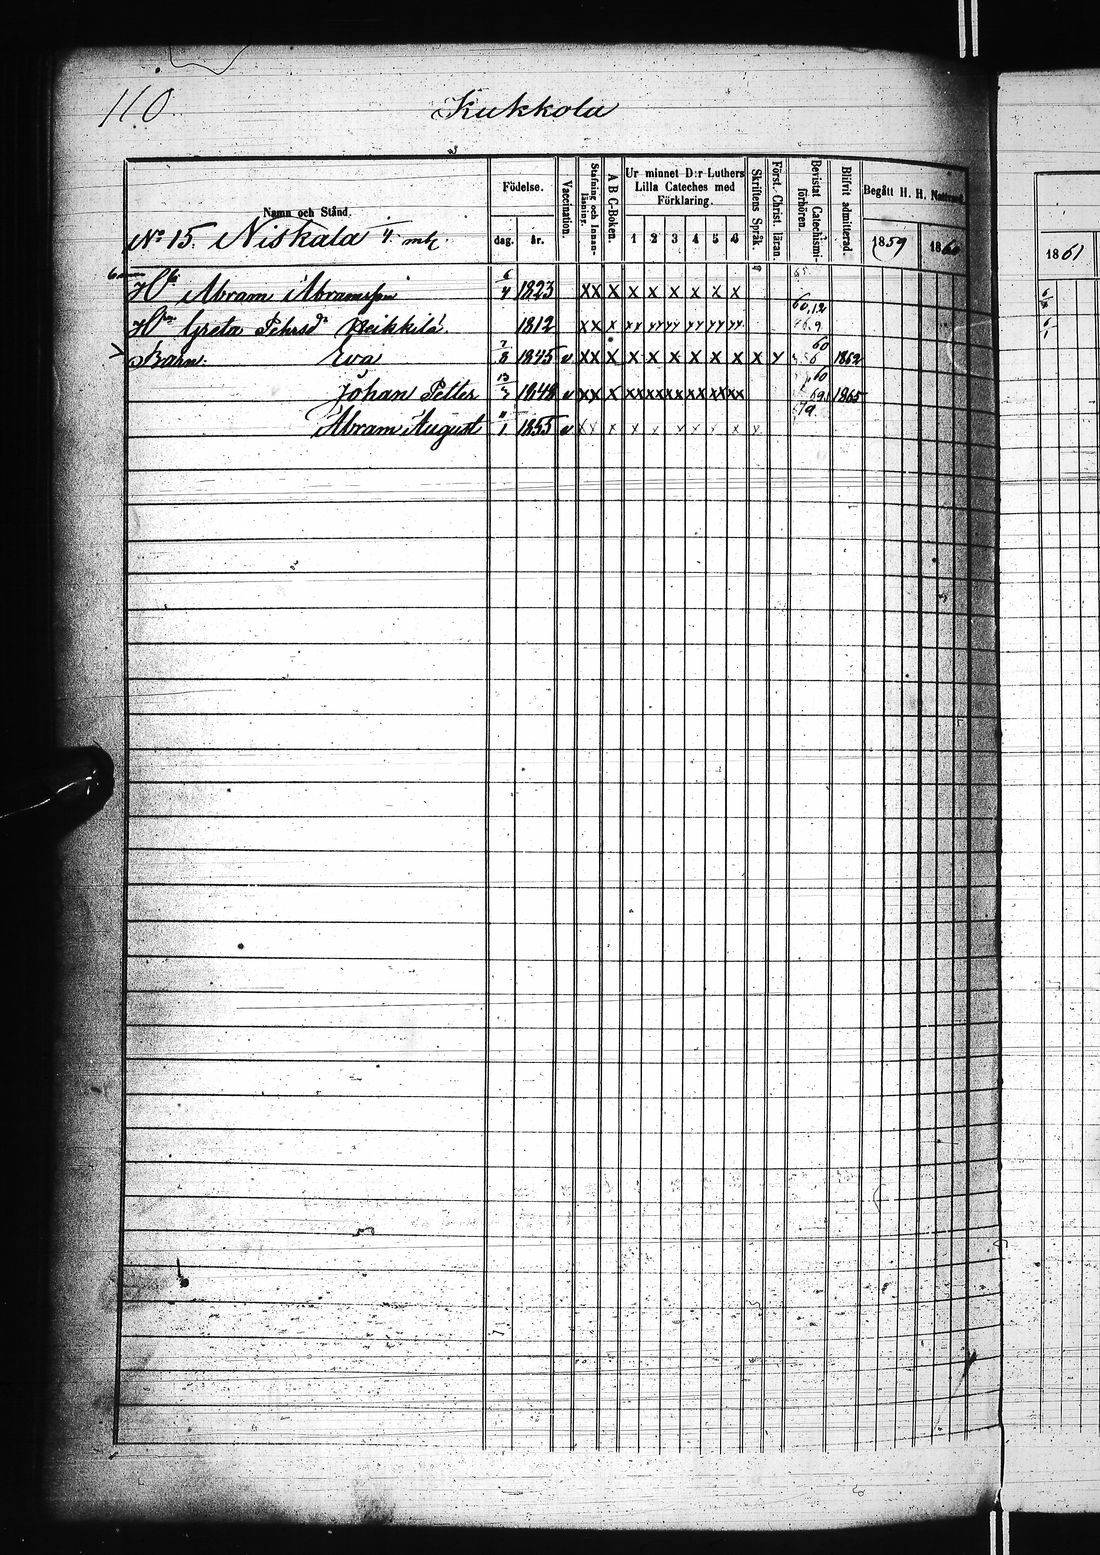 110.
Kukkola
Namn och Stånd. Födelse. dag. år. Vaccination. Stafning och Innanläsning. A B C-Boken. Ur minnet D:r Luthers Lilla Cateches med Förklaring. 1 2 3 4 5 6 Skriftens Språk. Först. Christ läran. Bevistat Catechismiförhören. Blifvit admitterad. Begått H. H. Nattvard. 1859 1860 1861
No 15. Niskala 4. mtl.
Abram Abramsson 6/4 1823 x x x x x x x x x 65
Greta Pehrsd:r Heikkilä 1812 x x x 60,12
Barn. Eva 7/8 1845 v x x x x x x x x x x 60 1862
Johan Petter 13/3 1848 v x x x xx xx xx xx xx xx 60 1865
Abram August 11/1 1855 v x x x x x x x x x x